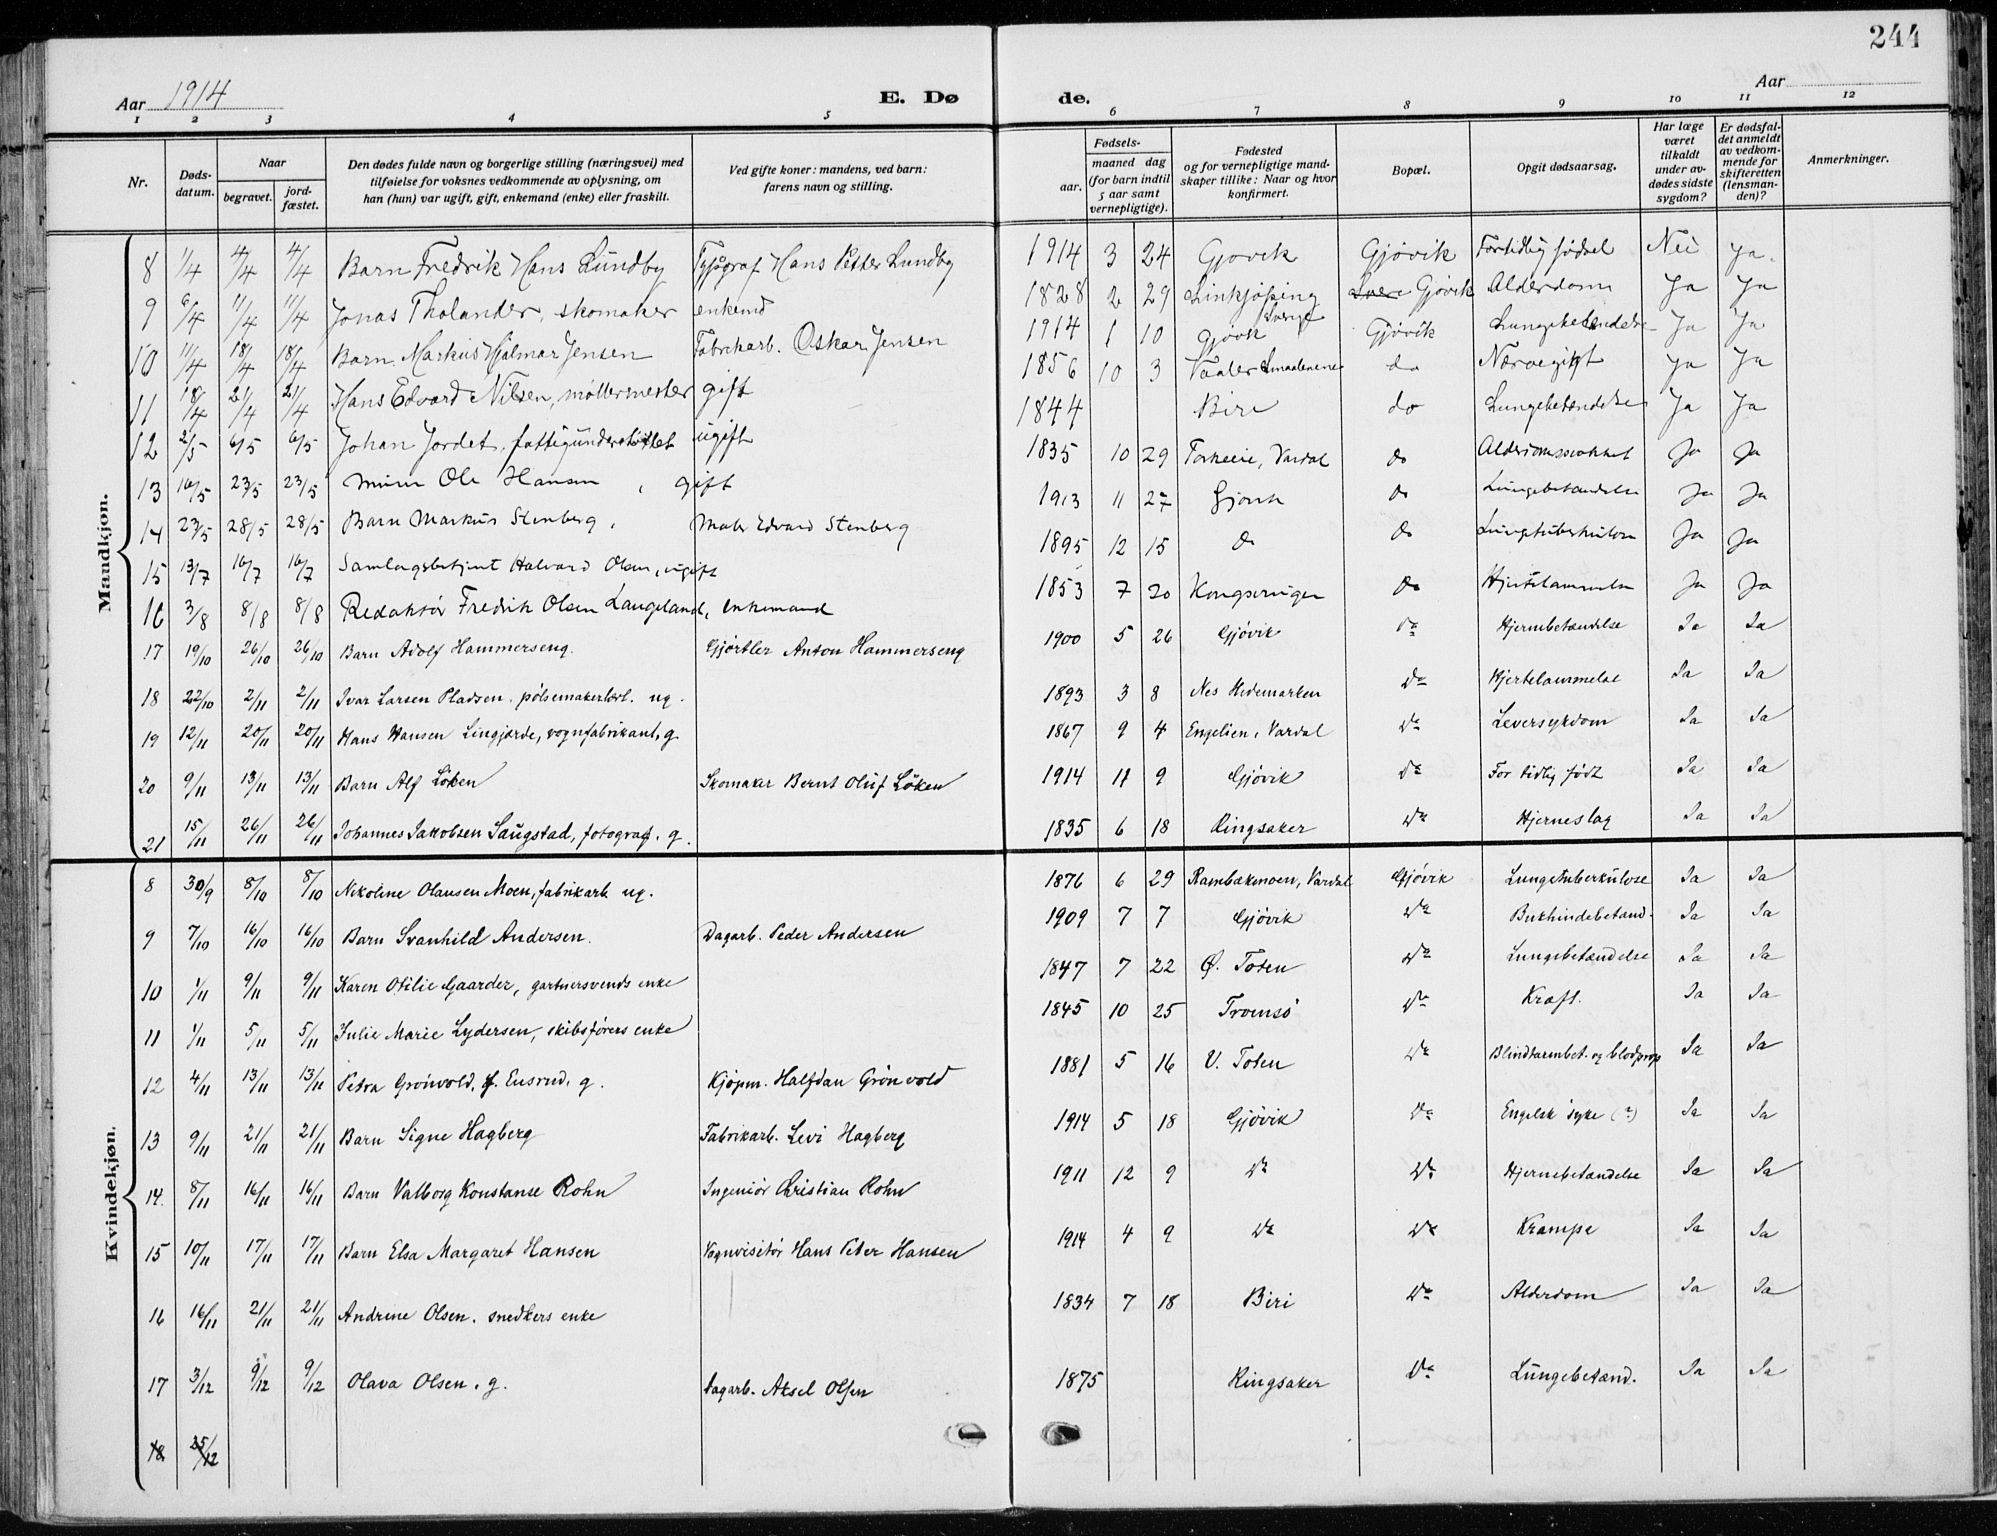 244
Aar 1914
E. Dø
de.
Aar
1 2 3 4 5 6 7 8 9 10 11 12
Nr.
Døds-
datum.
Naar
begravet.
jord-
fæstet.
Den dødes fulde navn og borgerlige stilling (næringsvei) med
tilføielse for voksnes vedkommende av oplysning, om
han (hun) var ugift, gift, enkemand (enke) eller fraskilt.
Ved gifte koner: mandens, ved barn:
farens navn og stilling.
Fødsels-
aar.
maaned dag
(for barn indtil
5 aar samt
vernepligtige).
Fødested
og for vernepligtige mand-
skaper tillike: Naar og hvor
konfirmert.
Bopæl.
Opgit dødsaarsag.
Har læge
været
tilkaldt
under av-
dødes sidste
sygdom?
Er dødsfal-
det anmeldt
av vedkom-
mende for
skifteretten
(lensman-
den)?
Anmerkninger.
Mandkjøn.
8 1/4 4/4 4/4 Barn Fredrik Hans Lundby Typograf Hans Petter Lundby 1914 3 24 Gjøvik Gjøvik Fortidlig fødsel Nei ja.
9 6/4 11/4 11/4 Jonas Tholander, skomaker enkemd 1828 2 29 Linkjøping Sverge Gjøvik Alderdom Ja Ja
10 11/4 18/4 18/4 Barn Markus Hjalmar Jensen Fabrikarb. Oskar Jensen 1914 1 10 Gjøvik Gjøvik Lungebetendelse Ja Ja
11 18/4 21/4 21/4 Hans Edvard Nilsen, møllermester gift 1856 10 3 Vaaler Smaalenene do Nærvegigt Ja Ja
12 2/5 6/5 6/5 Johan Jordet, fattigunderstøttet ugift 1844 Biri do Lungebetændelse Ja Ja
13 16/5 23/5 23/5 Murer Ole Hansen, gift 1835 10 29 Vardal do Ja Ja
14 23/5 28/5 28/5 Barn Markus Stenberg, Maler Edvard Stenberg 1913 11 27 Gjøvik do Lungebetændelse Ja Ja
15 13/7 16/7 16/7 Samlagsbetjent Halvard Olsen, ugift 1895 12 15 do do Lungetuberkulose Ja Ja
16 3/8 8/8 8/8 Redaktør Fredrik Olsen Laugeland, enkemand 1853 7 20 Kongsvinger do Hjertelammelse Ja Ja
17 19/10 26/10 26/10 Barn Adolf Hammerseng. Gjørtler Anton Hammerseng 1900 5 26 Gjøvik do Hjernebetændelse Ja Ja
18 22/10 2/11 2/11 Ivar Larsen Pladsen. pølsemakerlærl. ug. 1893 3 8 Nes Hedemarken do Hjertelammelse Ja Ja
19 12/11 20/11 20/11 Hans Hansen Lingjærde, vognfabrikant, g. 1867 9 4 Engelien, Vardal do Leversykdom Ja Ja
20 9/11 13/11 13/11 Barn Alf Løken Skomaker Bernt Oluf Løken 1914 11 9 Gjøvik do For tidlig født Ja Ja
21 15/11 26/11 26/11 Johannes Jakobsen Saugstad, fotograf. g. 1835 6 18 Ringsaker do Hjerneslag Ja Ja
Kvindekjøn.
8 30/9 8/10 8/10 Nikoline Olausen Moen, fabrikarb. ug. 1876 6 29 Rambækmoen, Vardal Gjøvik Lungetuberkulose Ja Ja
9 7/10 16/10 16/10 Barn Svanhild Andersen. Dagarb. Peder Andersen 1909 7 7 Gjøvik do Bukhindebetænd. Ja Ja
10 1/11 9/11 9/11 Karen Otilie Gaarder, gartnersvends enke 1847 7 22 Ø. Toten do Lungebetændelse Ja Ja
11 1/11 5/11 5/11 Julie Marie Lydersen, skibsførers enke 1845 10 25 Tromsø do Kræft. Ja Ja
12 4/11 13/11 13/11 Petra Grønvold, f. Eusrud, g. Kjøpm. Halfdan Grønvold 1881 5 16 V. Toten do Blindtarmbet. og blodprop Ja Ja
13 9/11 21/11 21/11 Barn Signe Hagberg Fabrikarb. Levi Hagberg 1914 5 18 Gjøvik do Engelsk syke (?) Ja Ja
14. 8/11 16/11 16/11 Barn Valborg Konstanse Rohn Ingeniør Christian Rohn 1911 12 9 do do Hjernebetændelse Ja Ja
15 10/11 17/11 17/11 Barn Elsa Margaret Hansen Vognvisitør Hans Peter Hansen 1914 4 9 do do Krampe Ja Ja
16 16/11 21/11 21/11 Andrine Olsen. snedkers enke 1834 7 18 Biri do Alderdom Ja Ja
17 3/12 9/12 9/12 Olava Olsen. g. Dagarb. Aksel Olsen 1875 Ringsaker do Lungebetænd. Ja Ja
18 25/12